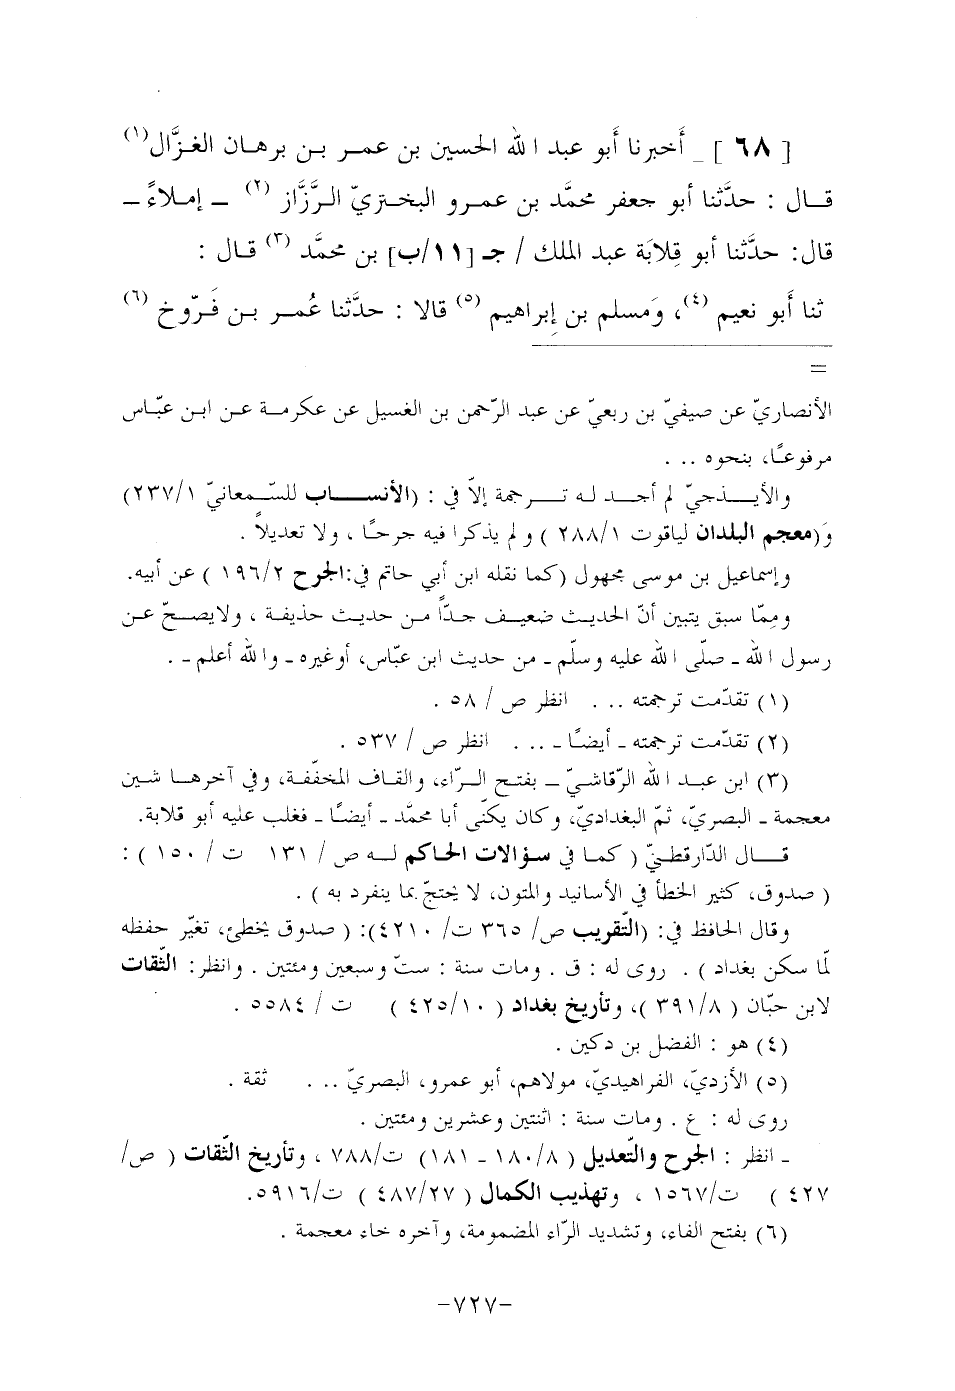 [ ٦٨ ] _ أَخبرنا أَبو عبد الله الحسين بن عمر بن برهان الغزَّال(١)
قال : حدَّثنا أبو جعفر محمَّد بن عمرو البختريّ الرَّزَّاز (٢) – إملاءً –
قال: حدَّثنا أبو قِلابَة عبد الملك / جـ [١١/ب] بن محمَّد (٣) قال :
ثنا أَبو نعيم (٤)، وَمسلم بن إِبراهيم (٥) قالا : حدَّثنا عُمر بن فَرّوخ (٦)
=
الأنصاريّ عن صيفيّ بن ربعيّ عن عبد الرّحمن بن الغسيل عن عكرمة عن ابن عبّاس
مرفوعًا، بنحوه ...
والأيذجيّ لم أجد له ترجمة إلاّ في : (الأنساب للسّمعانيّ ٢٣٧/١)
وَ(معجم البلدان لياقوت ٢٨٨/١ ) ولم يذكرا فيه جرحًا ، ولا تعديلاً .
وإسماعيل بن موسى مجهول (كما نقله ابن أبي حاتم في:الجرح ١٩٦/٢ ) عن أبيه.
وممّا سبق يتبين أنّ الحديث ضعيف جدّاً من حديث حذيفة ، ولايصحّ عن
رسول الله ـ صلّى الله عليه وسلّم ـ من حديث ابن عبّاس، أوغيره ـ والله أعلم ـ .
(١) تقدّمت ترجمته ... انظر ص / ٥٨ .
(٢) تقدّمت ترجمته ـ أيضًا ـ ... انظر ص / ٥٣٧ .
(٣) ابن عبد الله الرّقاشيّ – بفتح الرّاء، والقاف المخفّفة، وفي آخرها شين
معجمة ـ البصريّ، ثمّ البغداديّ، وكان يكنّى أبا محمّد ـ أيضًا ـ فغلب عليه أبو قلابة.
قال الدّارقطنيّ ( كما في سؤالات الحاكم له ص / ١٣١ ت / ١٥٠ ) :
( صدوق، كثير الخطأ في الأسانيد والمتون، لا يحتجّ بما ينفرد به ) .
وقال الحافظ في: (التّقريب ص/ ٣٦٥ ت/ ٤٢١٠): ( صدوق يخطئ، تغيّر حفظه
لمّا سكن بغداد ) . روى له : ق . ومات سنة : ستّ وسبعين ومئتين . وانظر: الثّقات
لابن حبّان ( ٣٩١/٨ )، وتأريخ بغداد ( ٤٢٥/١٠ ) ت / ٥٥٨٤ .
(٤) هو : الفضل بن دكين .
(٥) الأزديّ، الفراهيديّ، مولاهم، أبو عمرو، البصريّ ... ثقة .
روى له : ع . ومات سنة : اثنتين وعشرين ومئتين .
ـ انظر : الجرح والتّعديل ( ١٨٠/٨ ـ ١٨١) ت/٧٨٨ ، وتأريخ الثّقات ( ص/
٤٢٧ ) ت/١٥٦٧ ، وتهذيب الكمال ( ٤٨٧/٢٧ ) ت/٥٩١٦.
(٦) بفتح الفاء، وتشديد الرّاء المضمومة، وآخره خاء معجمة .
-٧٢٧-